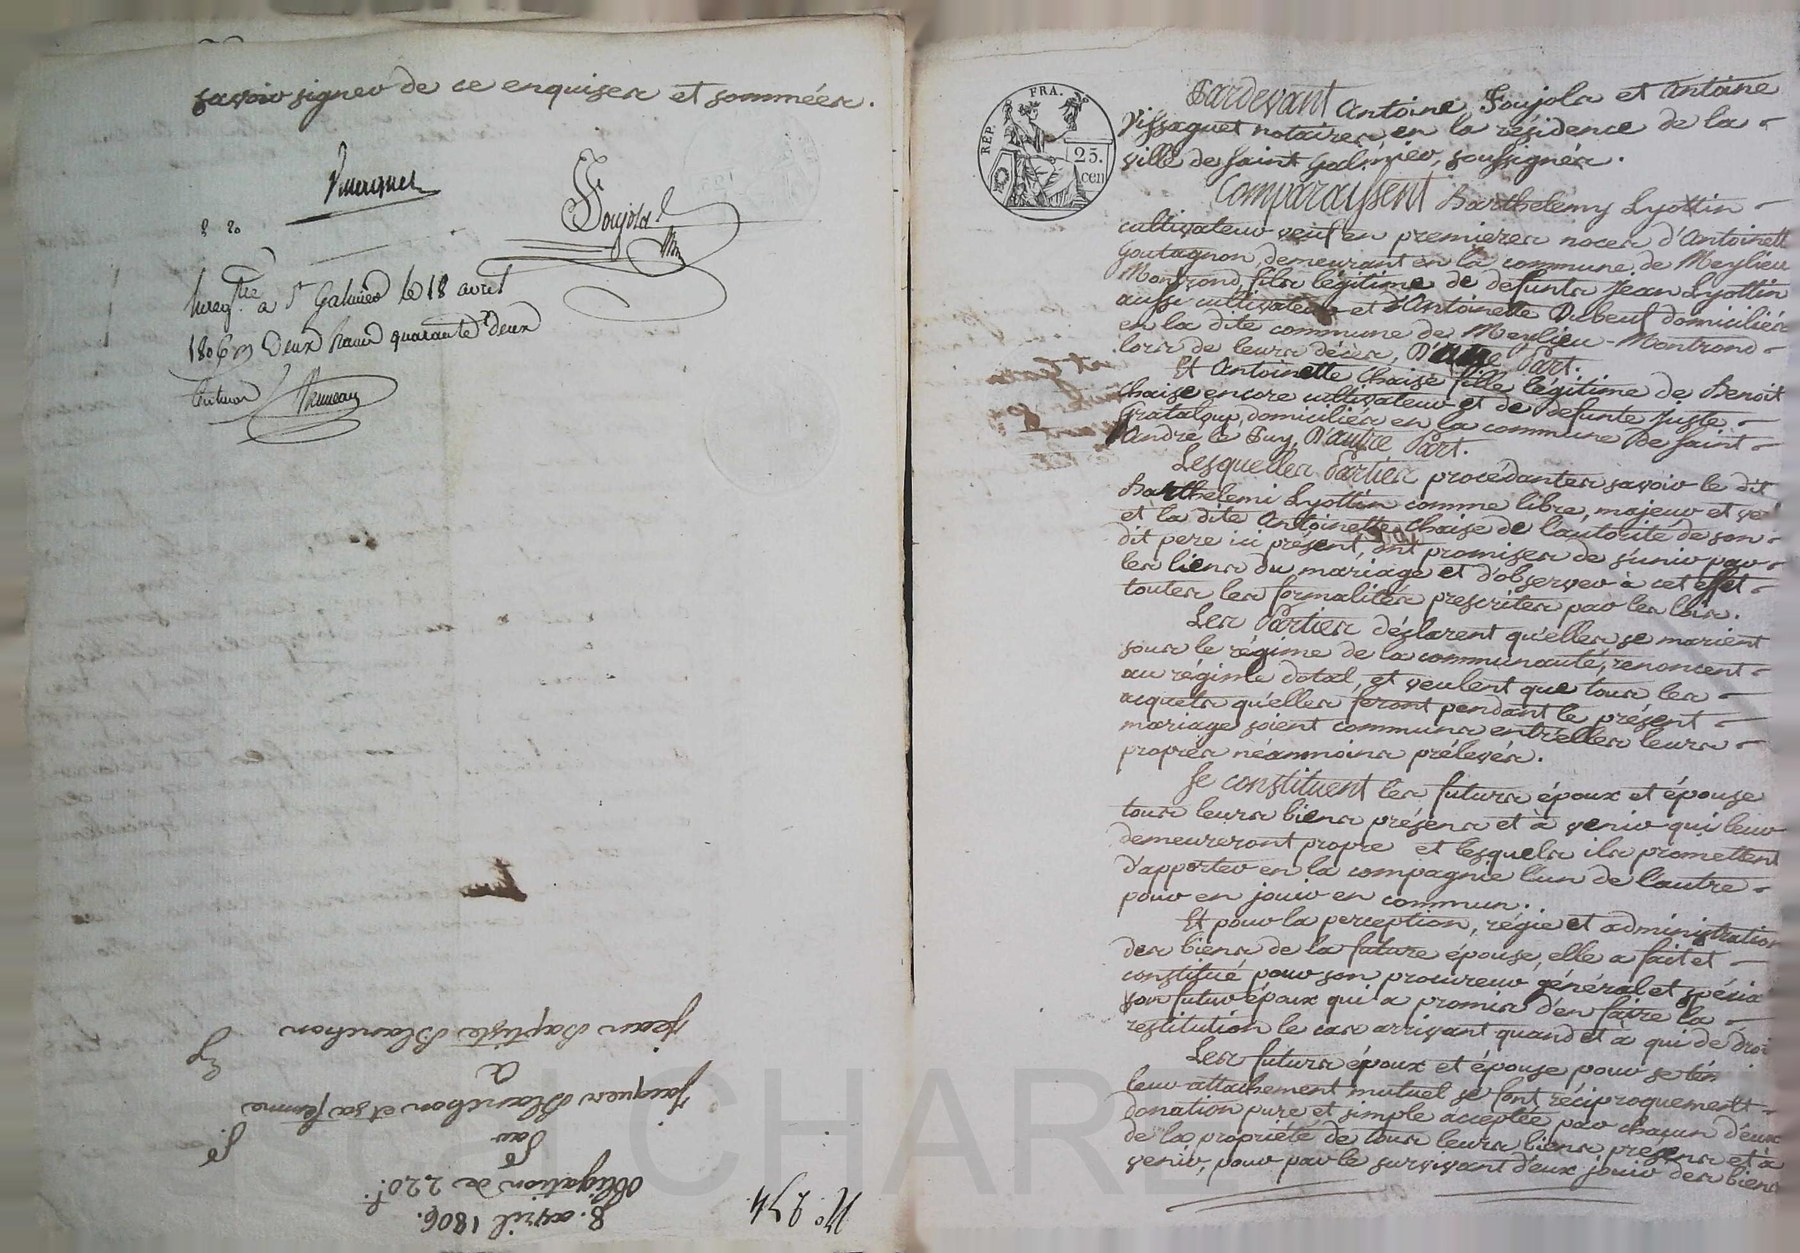 savoir signer de ce enquises et sommées.
Vissaguet
Poujola
Enreg.tré a S.t Galmier le 18 avril
1806 Deux francs quarante deux
centimes
N.o 274
8. avril 1806.
obligation de 220f.
par
Jacques Blanchon et sa femme
a
Jean Baptiste Blanchon
REP. FRA.
25.
cen
Pardevant Antoine Poujola et Antoine
Vissaguet notaires en la résidence de la
ville de Saint Galmier, soussignés.
Comparaissent Barthelemy Lyottin
cultivateur veuf en premieres noces d'Antoinette
Goutagnon, demeurant en la commune de Meylieu
Montrond, fils légitime de defunts Jean Lyottin
aussi cultivateur et d'Antoinette Dubeuf domiciliés
en la dite commune de Meylieu-Montrond
lors de leurs décès, D'une Part.
Et Antoinette Chaise fille légitime de Benoit
Chaise encore cultivateur et de defunte Juste
Grataloup, domiciliés en la commune De Saint
André le Puy, D'autre Part.
Lesquelles Parties procédantes savoir le dit
Barthelemi Lyottin comme libre, majeur et veuf
et la dite Antoinette Chaise de l'autorité de son
dit pere ici présent, ont promises de s'unir par
les liens du mariage et d'observer à cet effet
toutes les formalités prescrites par les lois.
Les Parties déclarent qu'elles se marient
sous le régime de la communauté, renoncent
au régime dotal, et veulent que tous les
acquets qu'elles feront pendant le présent
mariage soient communs entr'elles leurs
propres néammoins prélevés.
Se constituent les futurs époux et épouse
tous leurs biens présens et à venir qui leur
demeureront propre et lesquels ils promettent
d'apporter en la compagnie l'un de l'autre
pour en jouir en commun.
Et pour la perception, régie et administration
des biens de la future épouse, elle a fait et
constitué pour son procureur général et spécial
son futur époux qui a promis d'en faire la
restitution le cas arrivant quand et à qui de droit
Les futurs époux et épouse pour se
leur attachement mutuel se font réciproquement
donation pure et simple acceptée par chacun d'eux
de la propriété de tous leurs biens présens et à
venir, pour par le survivant d'eux jouir des biens